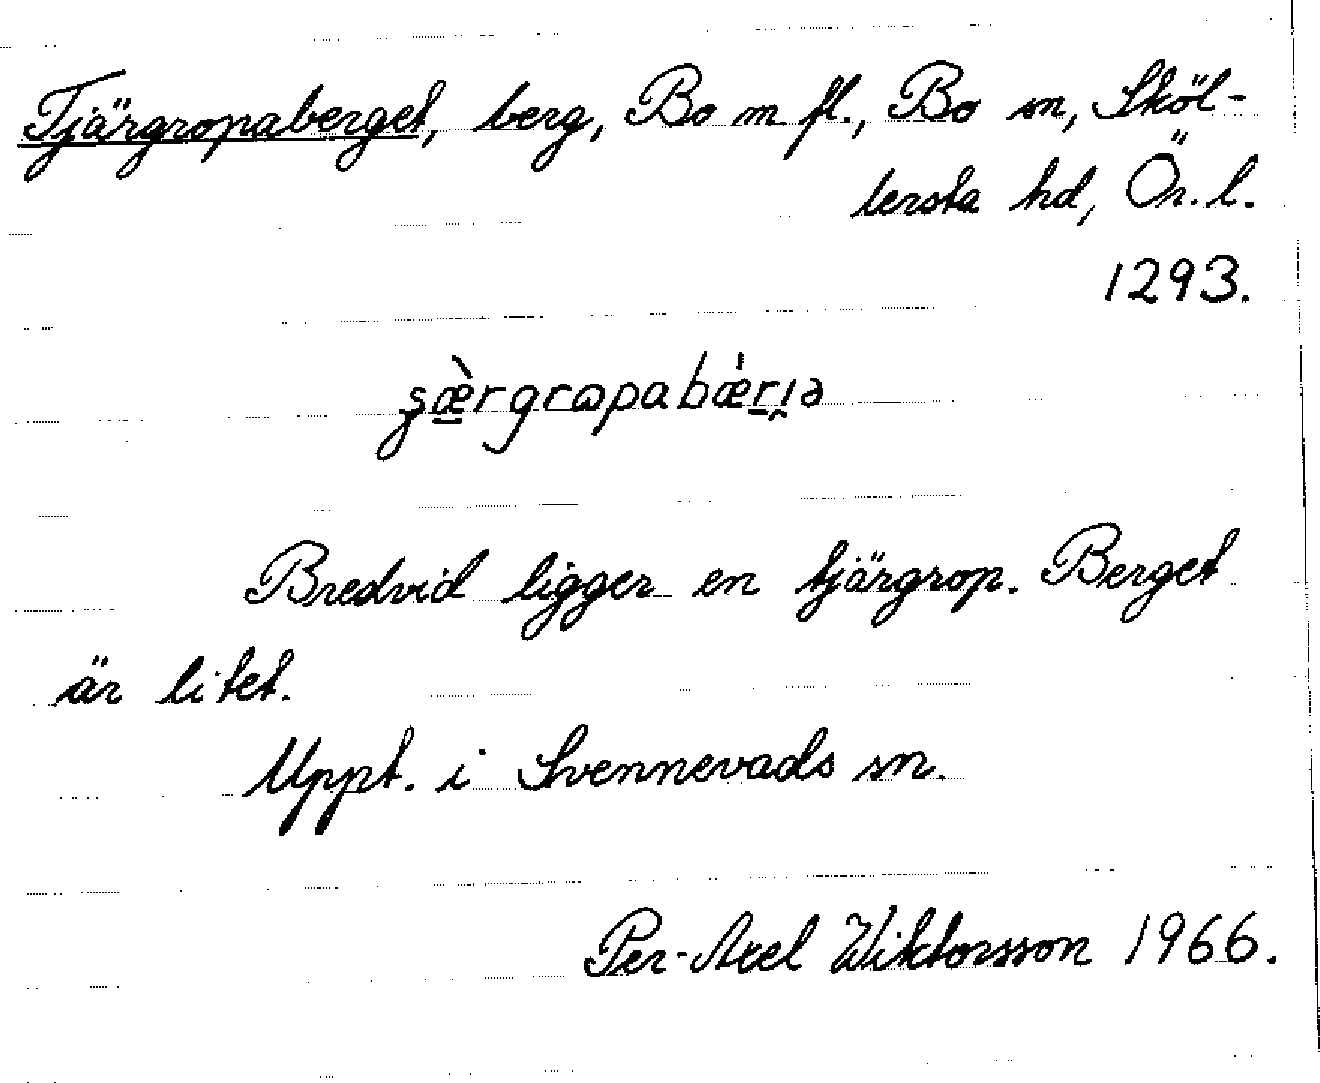 Tjärgropaberget, berg, Bo m fl., Bo sn, Sköl-
lersta hd, Ör. l.
1293.
Bredvid ligger en tjärgrop. Berget
är litet.
Uppt. i Svennevads sn.
Per-Axel Wiktorsson 1966.